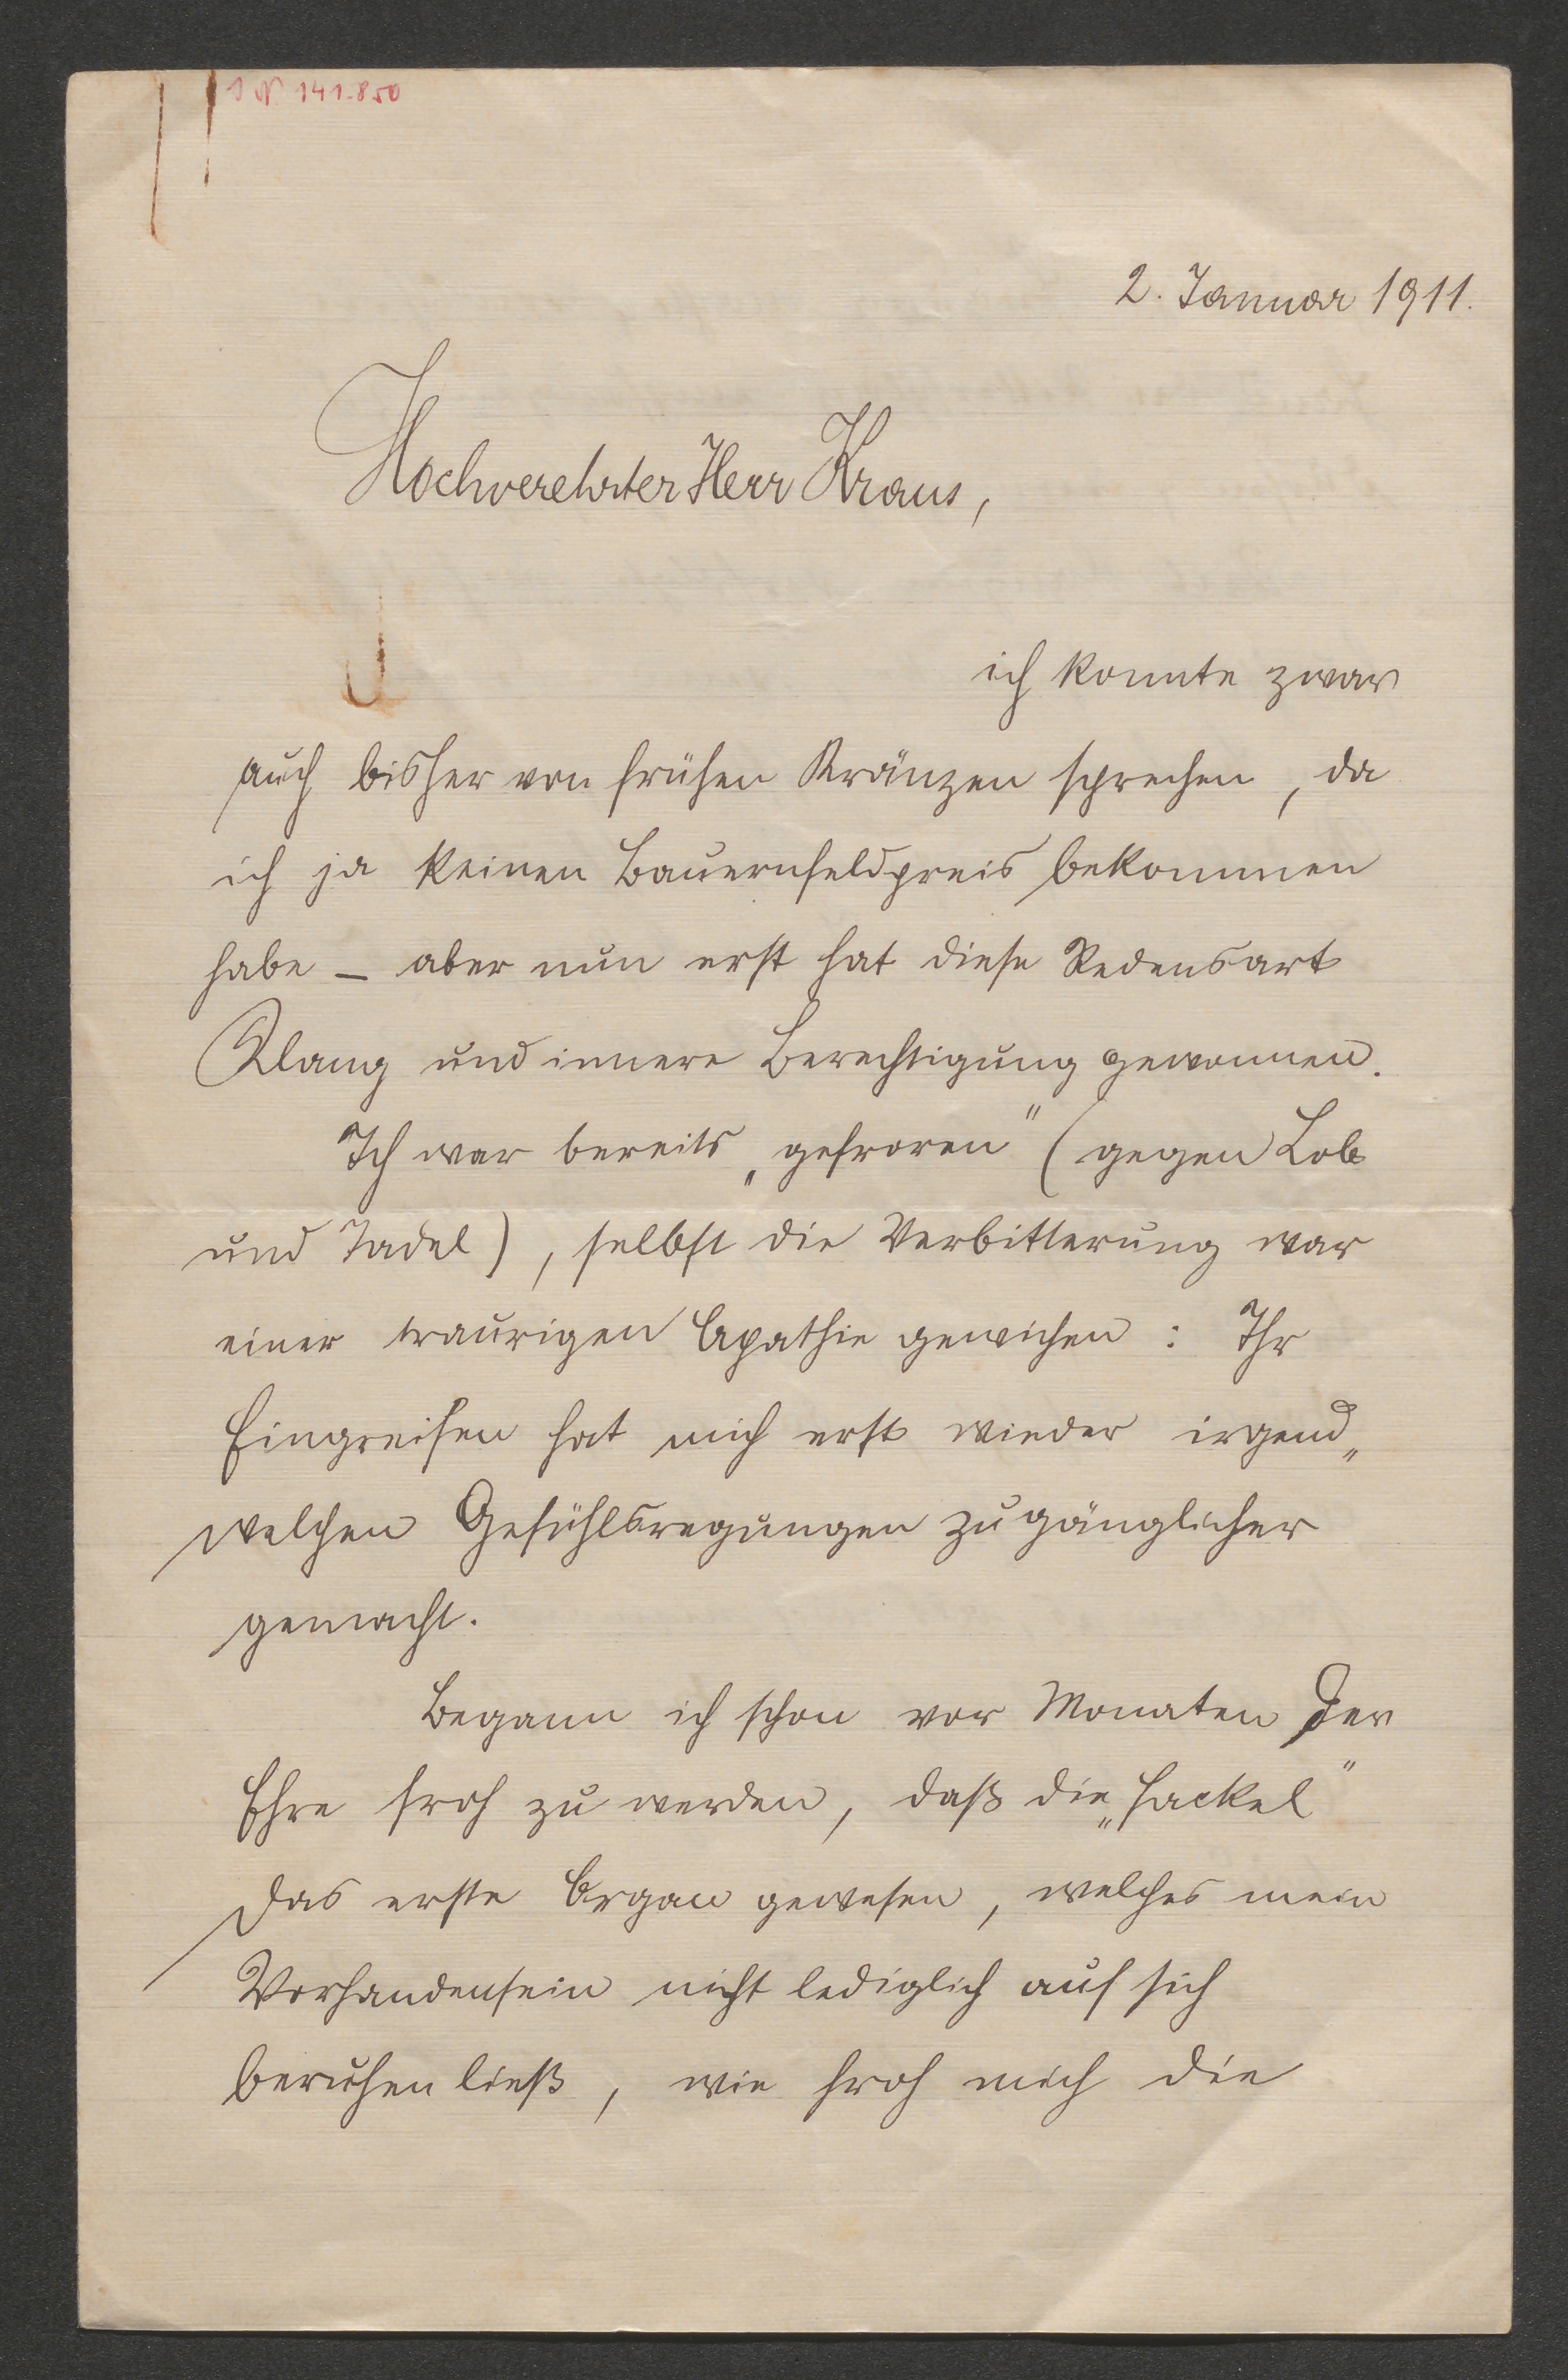 IN 141.850
2. Januar 1911.
Hochverehrter Herr Kraus,
ich konnte zwar
auch bisher von frühen Kränzen sprechen, da
ich ja keinen Bauernfeldpreis bekommen
habe – aber nun erst hat diese Redensart
Klang und innere Berechtigung gewonnen.
Ich war bereits „gefroren“ (gegen Lob
und Tadel), selbst die Verbitterung war
einer traurigen Apathie gewichen: Ihr
Eingreifen hat mich erst wieder irgend„
welchen Gefühlsregungen zugänglicher
gemacht.
Begann ich schon vor Monaten der
Ehre froh zu werden, daß die „Fackel“
das erste Organ gewesen, welches mein
Vorhandensein nicht lediglich auf sich
beruhen ließ, wie froh mich die